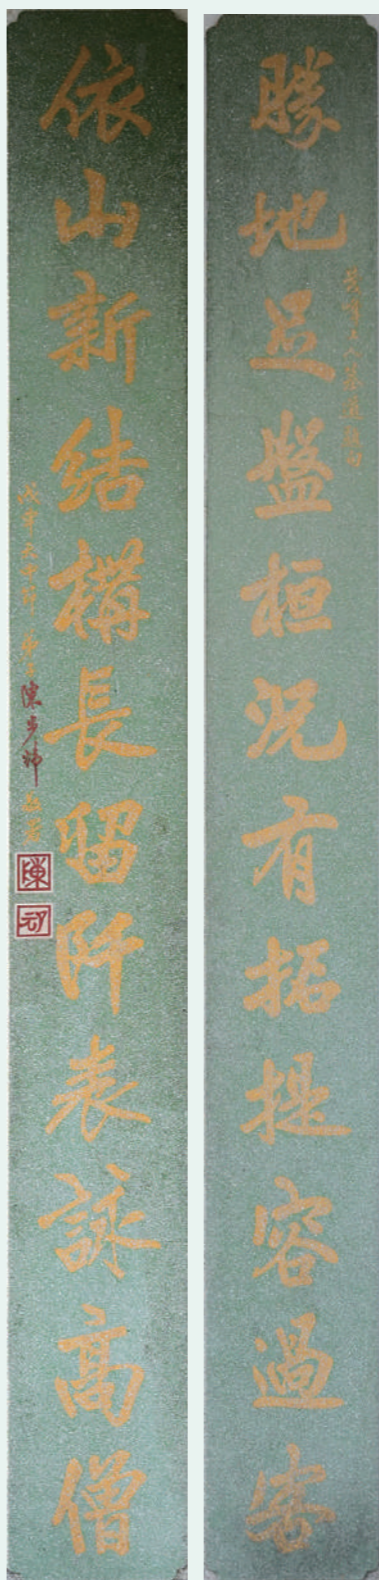 勝地足盤桓況有招提容過客
依山新結構長留阡表詠高僧
陳步墀
陳